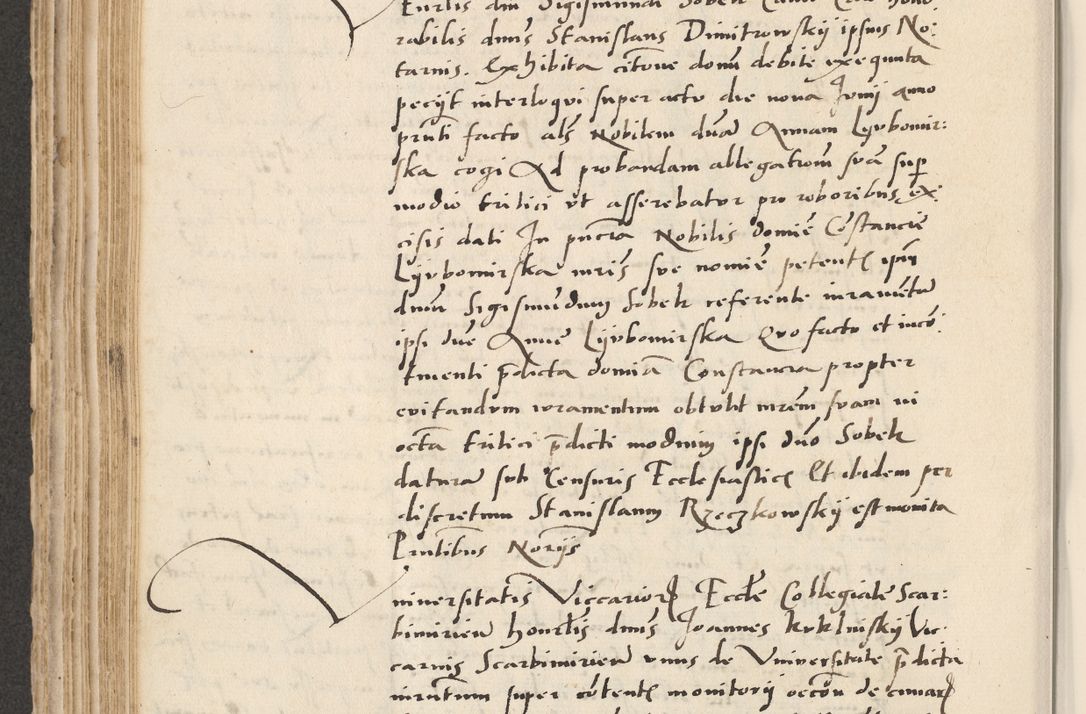 rabilis dnus Stanislaus Dimitrowskÿ ipsius No:
tarius. Exhibita citione domi debite exequuta
pecijt interloqui super actu die nona Junij anno
prnti facto als Nobilem dnam Annam Lÿvbomir:
ska cogi Ad probandam allegationem suam sup
modio tritici vt asserebatur pro roboribus ex:
cisis dati In pncia Nobilis domine Constancie
Lÿvbomirska mris sue nomine petente ipm
dnum Sigismundum Sobek referente iuramentum
ipsi dne Anne Lÿvbomirska Quo facto et in
tinenti pdicta domina Constancia propter
evitandvm iuramentum obtulit mrem suam in
octa tritici pdicti modium ipsi dno Sobek
daturam sub Censuris Ecclesiasticis Et ibidem per
discretum Stanislaum Rzeczkowskÿ est monita
Prntibus Norijs
niversitatis Viccariorum Eccle Collegiate Scar:
bimirien honrlis dnus Joannes kvklinskÿ Vic:
carius Scarbimirien vnus de Vniversitate pdicta
super contentis monitorij